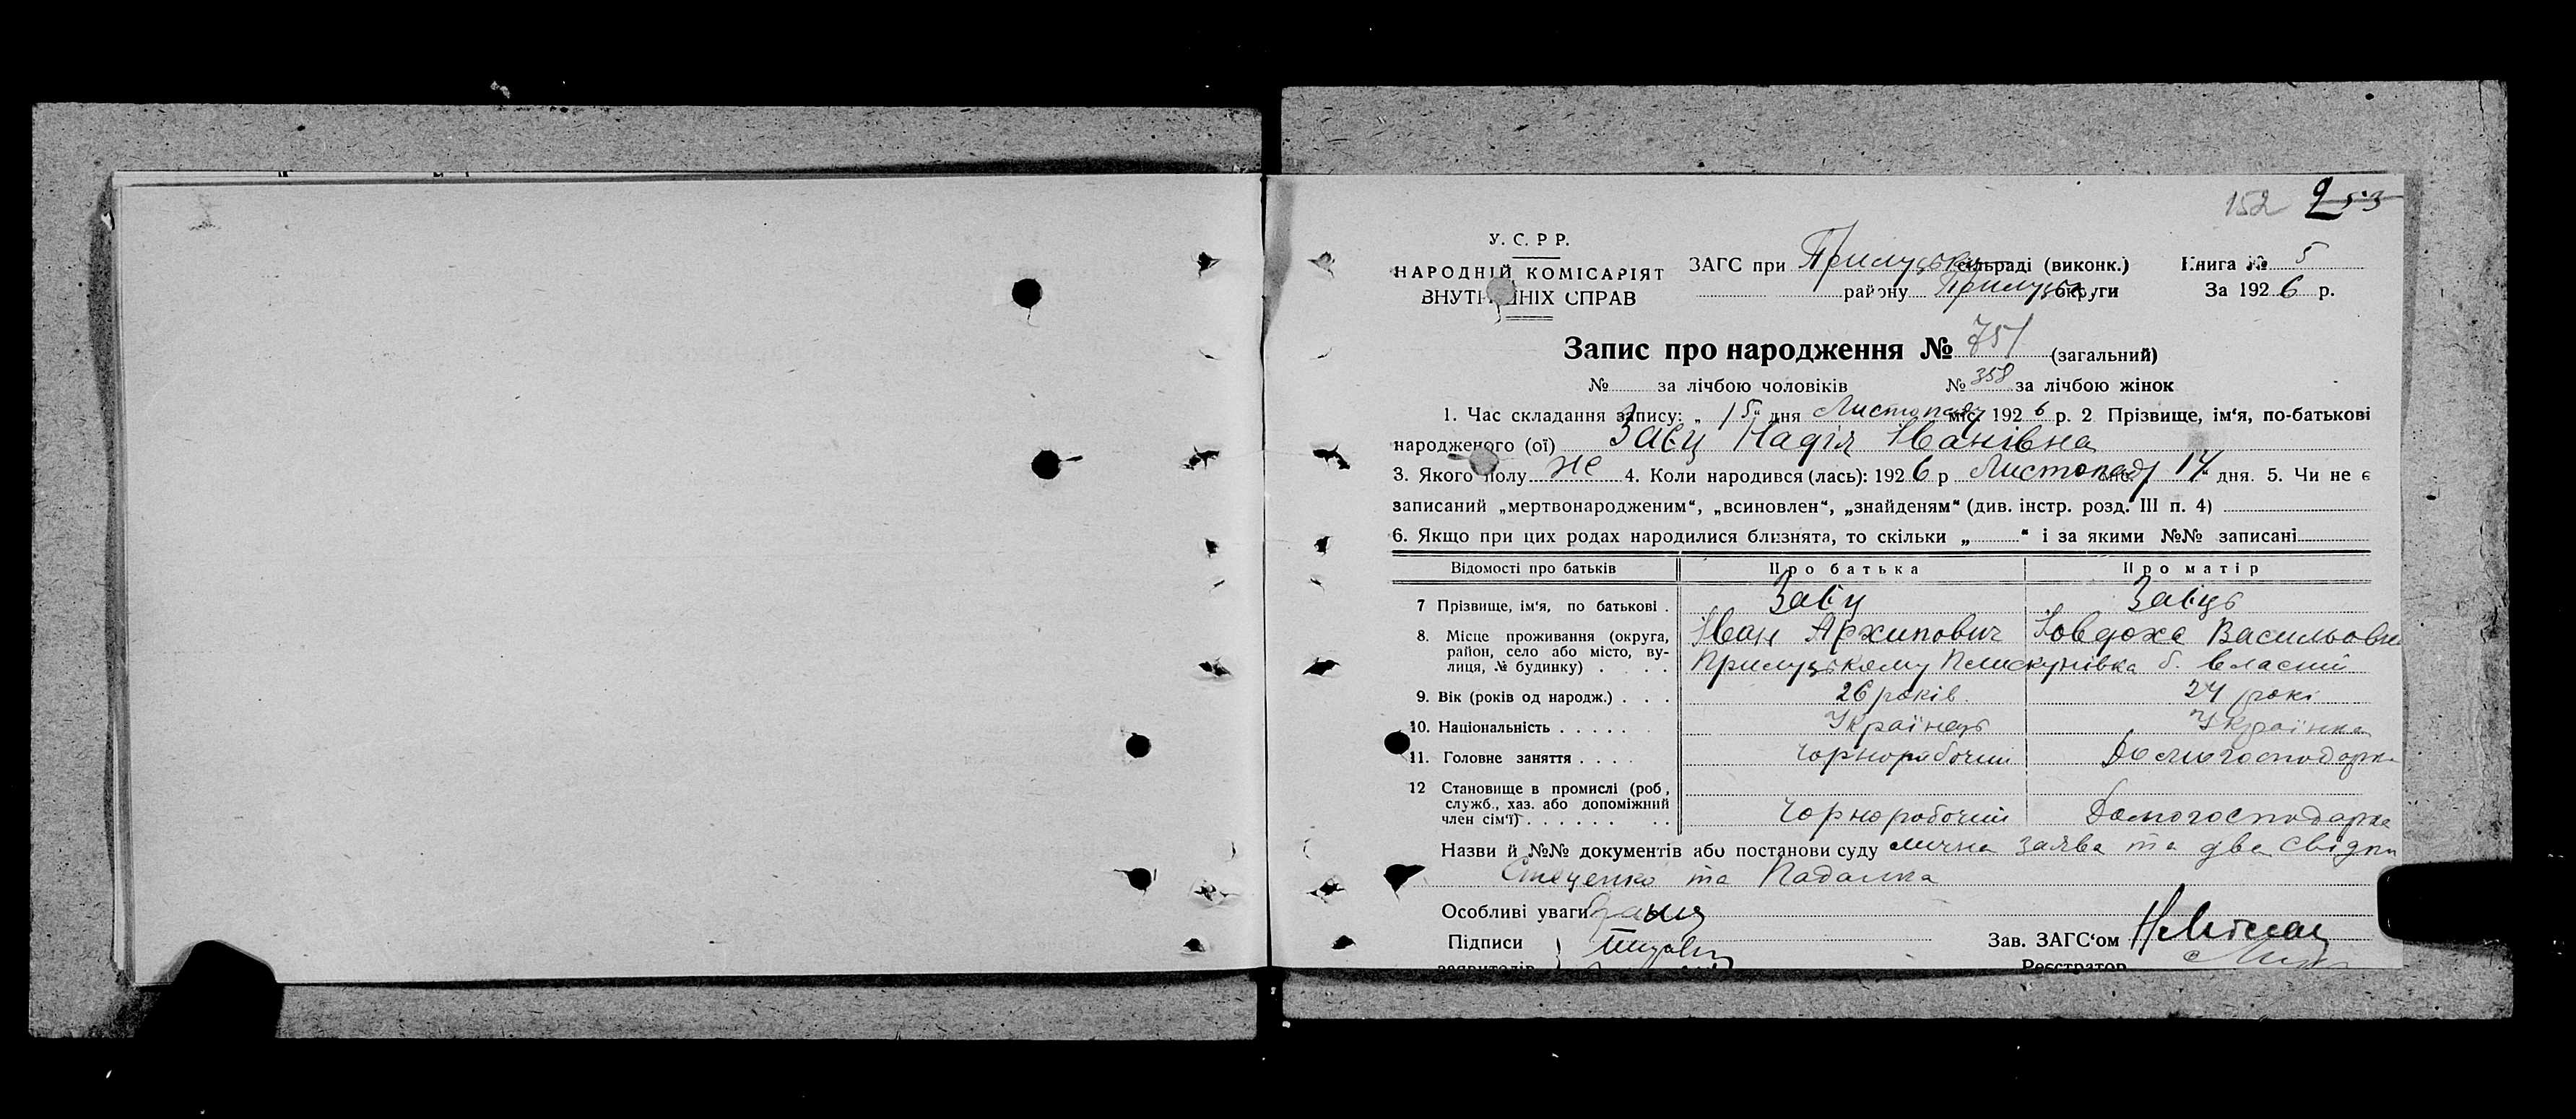 152 253
У. С. Р Р.
НАРОДНІЙ КОМІСАРІЯТ
ВНУТРІШНІХ СПРАВ
ЗАГС при Прилуцькій сельраді (виконк.) Книга № 5
району Прилуць округи За 1926 р.
Запис про народження № 751 (загальний)
№ за лічбою чоловіків № 358 за лічбою жінок
1. Час складання запису: „ 15 “ дня Листопаду міс. 1926 р. 2 Прізвище, ім‘я, по-батькові
народженого (ої) Заєц Надія Іванівна
3. Якого полу же 4. Коли народився (лась): 1926 р Листопаду міс. 14 “ дня. 5. Чи не є
записаний „мертвонародженим“, „всиновлен“, „знайденям“ (див. інстр. розд. III п. 4)
6. Якщо при цих родах народилися близнята, то скільки „ “ і за якими №№ записані
Відомості про батьків Про батька Про матір
7 Прізвище, ім‘я, по батькові . Заєц Заєць
8. Місце проживання (округа, район, село або місто, вулиця, № будинку) . . . . Іван Архипович Ювдоха Васильовн
Прилуцькому Плискунівка б. власний
9. Вік (років од народж.) . . . 26 років. 24 рокі
10. Національність . . . . . . Українець Українка
11. Головне заняття . . . . Чорноробочий Домогосподарка
12 Становище в промислі (роб, служб., хаз. або допоміжний член сім‘ї) . . . . . . . . Чорноробочий Домогосподарка
Назви й №№ документів або постанови суду лична заява та два свідки
Стеценко та Падалка
Особливі уваги
Підписи
заявителів
Зав. ЗАГС‘ом
Реєстратор